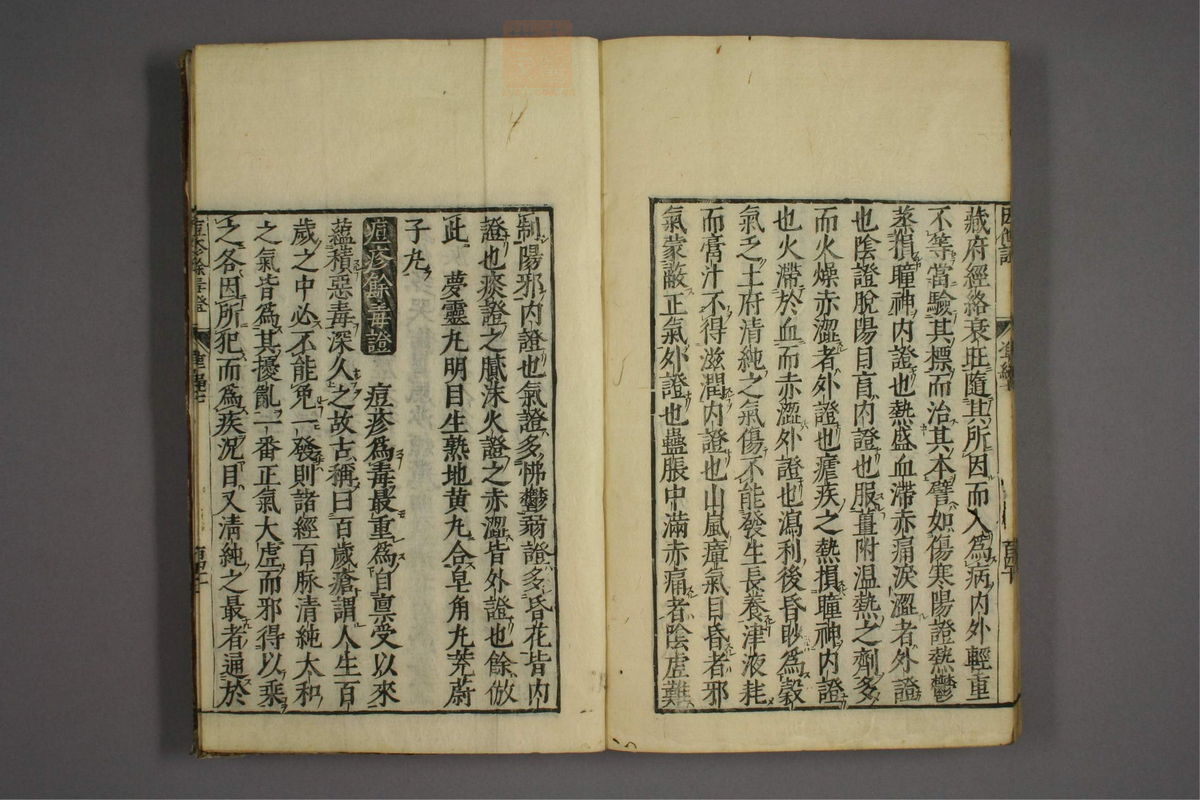 藏府經絡衰旺隨其所因而入爲病内外輕重
不等當驗其標而治其本譬如傷寒陽證熱鬱
蒸損瞳神内證也熱盛血滯赤痛淚澀者外證
也陰證脫陽目盲内證也服薑附温熱之劑多
而火燥赤澀者外證也瘧疾之熱損瞳神内證
也火滯於血而赤澀外證也瀉利後昏眇爲穀
氣乏土府清純之氣傷不能發生長養津液耗
而膏汁不得滋潤内證也山嵐瘴氣目昏者邪
氣蒙蔽正氣外證也蠱脹中滿赤痛者陰虛難
制陽邪内證也氣證多怫鬱弱證多昏花皆内
證也痰證之膩沫火證之赤澀皆外證也餘倣
此 夢靈丸明目生熟地黄丸合皂角丸茺蔚
子丸
痘疹餘毒證 痘疹爲毒最重爲自禀受以來
蘊積惡毒深久之故古稱曰百歲瘡謂人生百
歲之中必不能免一發則諸經百脉清純太和
之氣皆爲其擾亂一番正氣大虛而邪得以乘
之各因所犯而爲疾況目又清純之最者通於